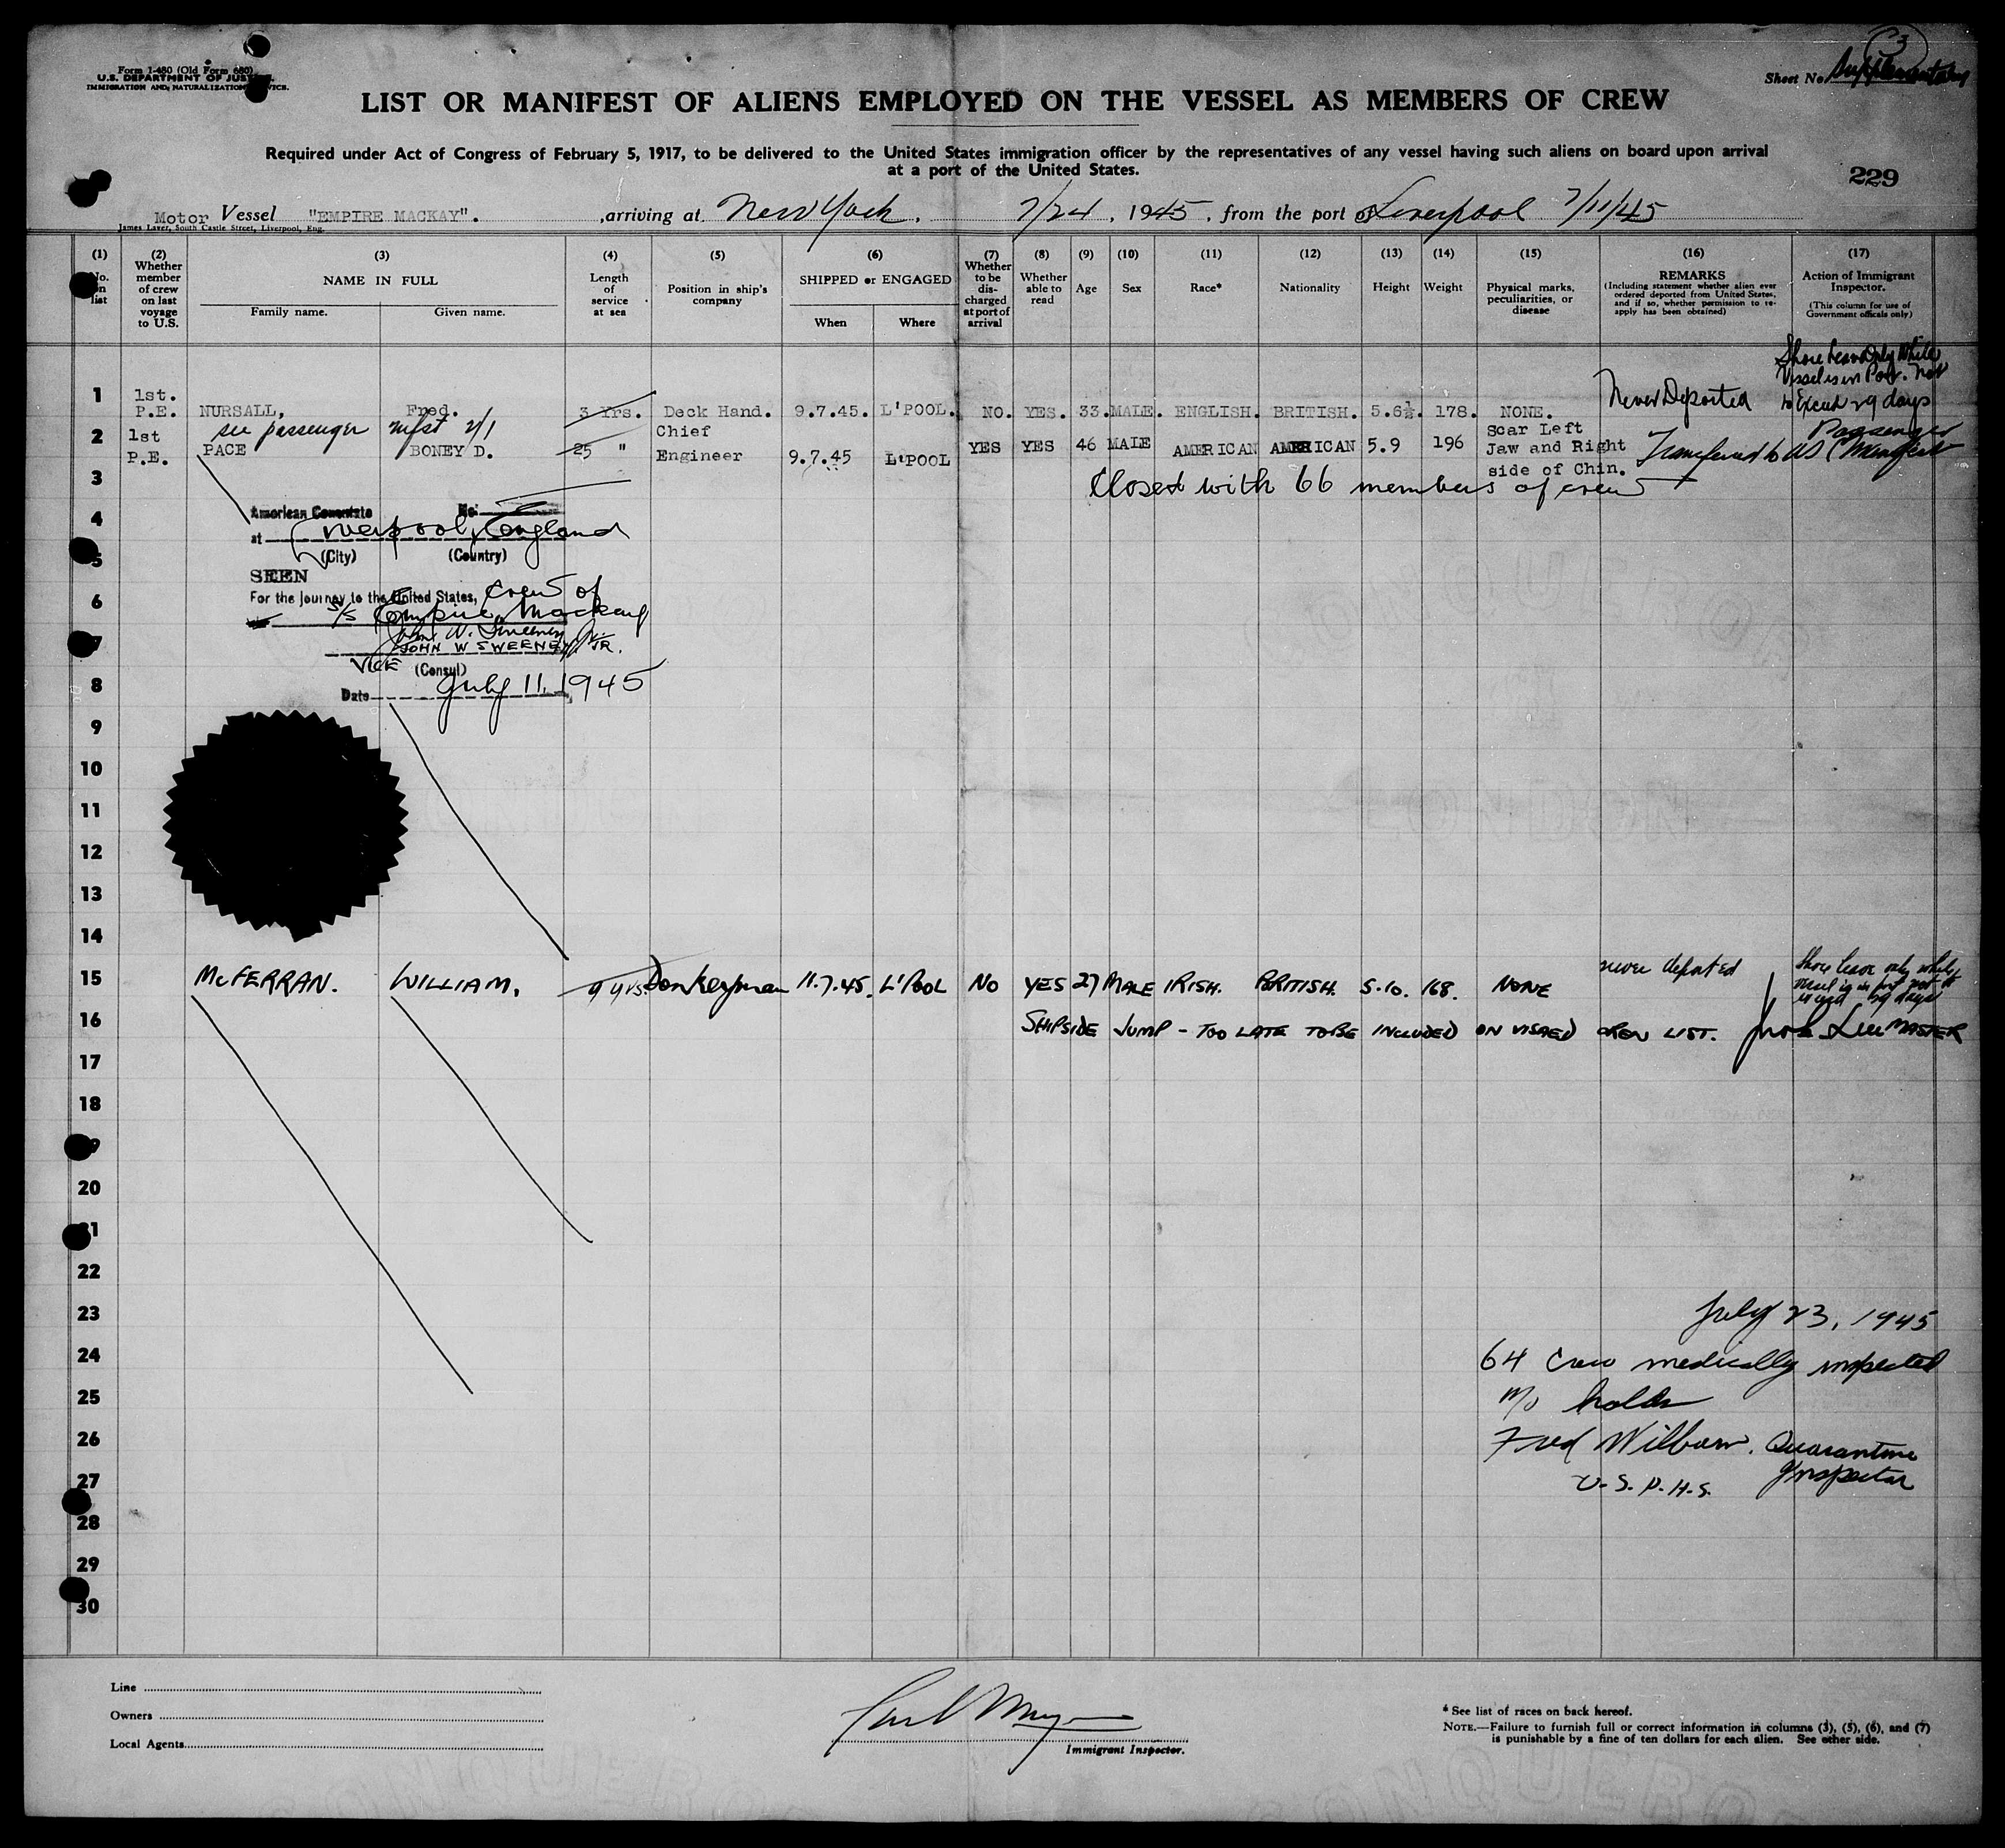 Form I-480 (Old Form 680)
U.S. DEPARTMENT OF JUS
IMMIGRATION AND NATURALIZATION VICE.
3
Sheet No. Supplementary
LIST OR MANIFEST OF ALIENS EMPLOYED ON THE VESSEL AS MEMBERS OF CREW
Required under Act of Congress of February 5, 1917, to be delivered to the United States immigration officer by the representatives of any vessel having such aliens on board upon arrival
at a port of the United States.
229
Motor Vessel "EMPIRE MACKAY". , arriving at New York. 7/24, 1945, from the port of Liverpool 7/11/45
James Laver, South Castle Street, Liverpool, Eng.
(1) No. on list
(2) Whether member of crew on last voyage to U.S.
(3) NAME IN FULL Family name. Given name.
(4) Length of service at sea
(5) Position in ship's company
(6) SHIPPED or ENGAGED When Where
(7) Whether to be discharged at port of arrival
(8) Whether able to read
(9) Age
(10) Sex
(11) Race*
(12) Nationality
(13) Height
(14) Weight
(15) Physical marks, peculiarities, or disease
(16) REMARKS (Including statement whether alien ever ordered deported from United States, and if so, whether permission to re-apply has been obtained)
(17) Action of Immigrant Inspector. (This column for use of Government officials only)
Shore Leave Only While
Vessel is in Port. Not
to Exceed 29 days
1 1st. P.E. NURSALL, Fred. 3 Yrs. Deck Hand. 9.7.45. L'POOL. NO. YES. 33. MALE. ENGLISH. BRITISH. 5.6½. 178. NONE. Never Deported
see passenger mfst 2/1
2 1st P.E. PACE BONEY D. 25 " Chief Engineer 9.7.45 L'POOL YES YES 46 MALE AMERICAN AMERICAN 5.9 196 Scar Left Jaw and Right side of Chin. Transferred to US Passenger Manifest
3 Closed with 66 members of crew
4
American Consulate No.
at Liverpool, England
5
(City) (Country)
SEEN
For the Journey to the United States, Crew of
6
S/S Empire Mackay
John W. Sweeney Jr.
7
JOHN W SWEENEY JR.
VICE (Consul)
8
Date July 11, 1945
9
10
11
12
13
14
15 McFERRAN. WILLIAM. 9 yrs. Donkeyman 11.7.45. L'POOL NO YES 27 MALE IRISH. BRITISH. 5.10. 168. NONE never deported Shore leave only while vessel is in port not to exceed 29 days
16 SHIPSIDE JUMP - TOO LATE TO BE INCLUDED ON VISAED CREW LIST. MASTER
17
18
19
20
21
22
23 July 23, 1945
24 64 Crew medically inspected
25 no holds
26 Fred Wilburn. Quarantine
27 U.S.P.H.S. Inspector
28
29
30
Line
Owners
Local Agents
Immigrant Inspector.
* See list of races on back hereof.
NOTE.—Failure to furnish full or correct information in columns (3), (5), (6), and (7)
is punishable by a fine of ten dollars for each alien. See other side.